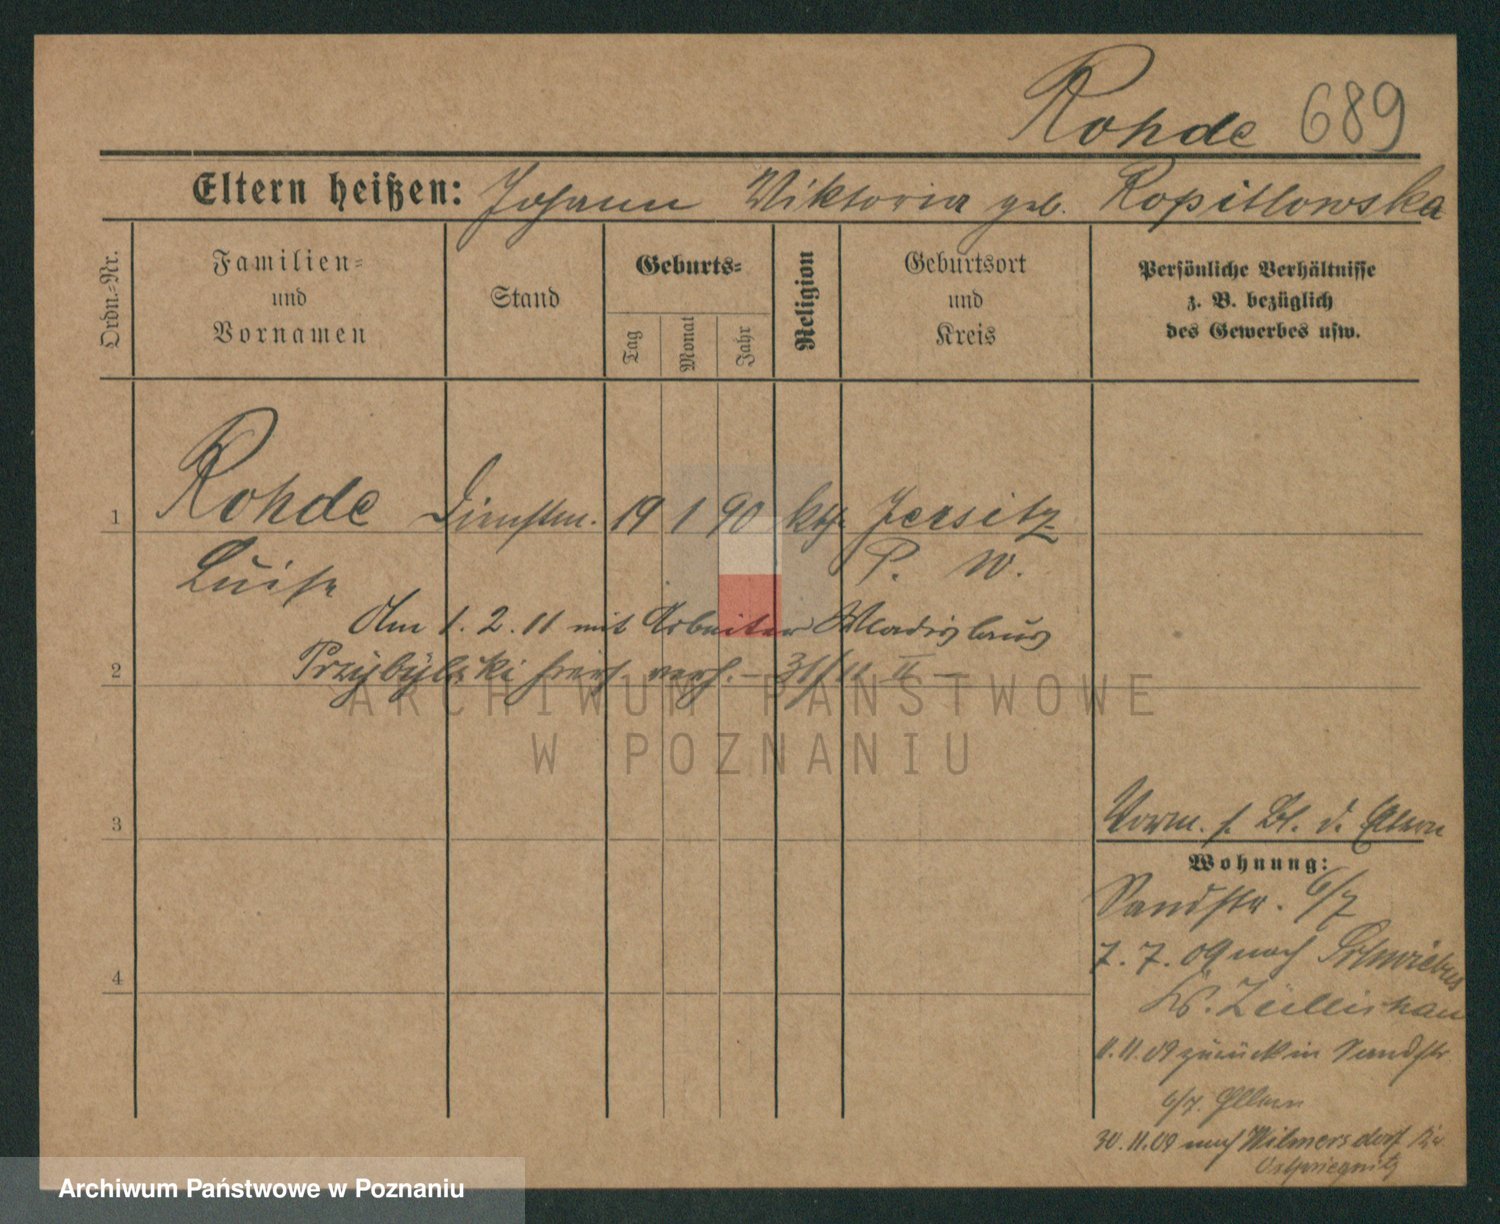 Rohde 689
Eltern heißen: Johann Viktoria geb. Kopitlowska
Ordn.-Nr.
Familien-
und
Vornamen
Stand
Geburts-
Tag
Monat
Jahr
Religion
Geburtsort
und
Kreis
Persönliche Verhältnisse
z. B. bezüglich
des Gewerbes usw.
1 Rohde Dienstm. 19 1 90 kth. Jersitz
Luise P. W.
Am 1. 2. 11 mit Arbeiter Wladislaus
2 Przybylski hier verh. – 31/11 II –
ARCHIWUM PAŃSTWOWE
W POZNANIU
3
Vorm. s. Bl. d. Eltern
Wohnung:
Sandstr. 6/7
7. 7. 09 nach Schwiebus
Kr. Züllichau
4
11. 11. 09 zurück in Sandstr.
6/7. Eltern
30. 11. 09 nach Wilmersdorf Kr.
Ostpriegnitz
Archiwum Państwowe w Poznaniu